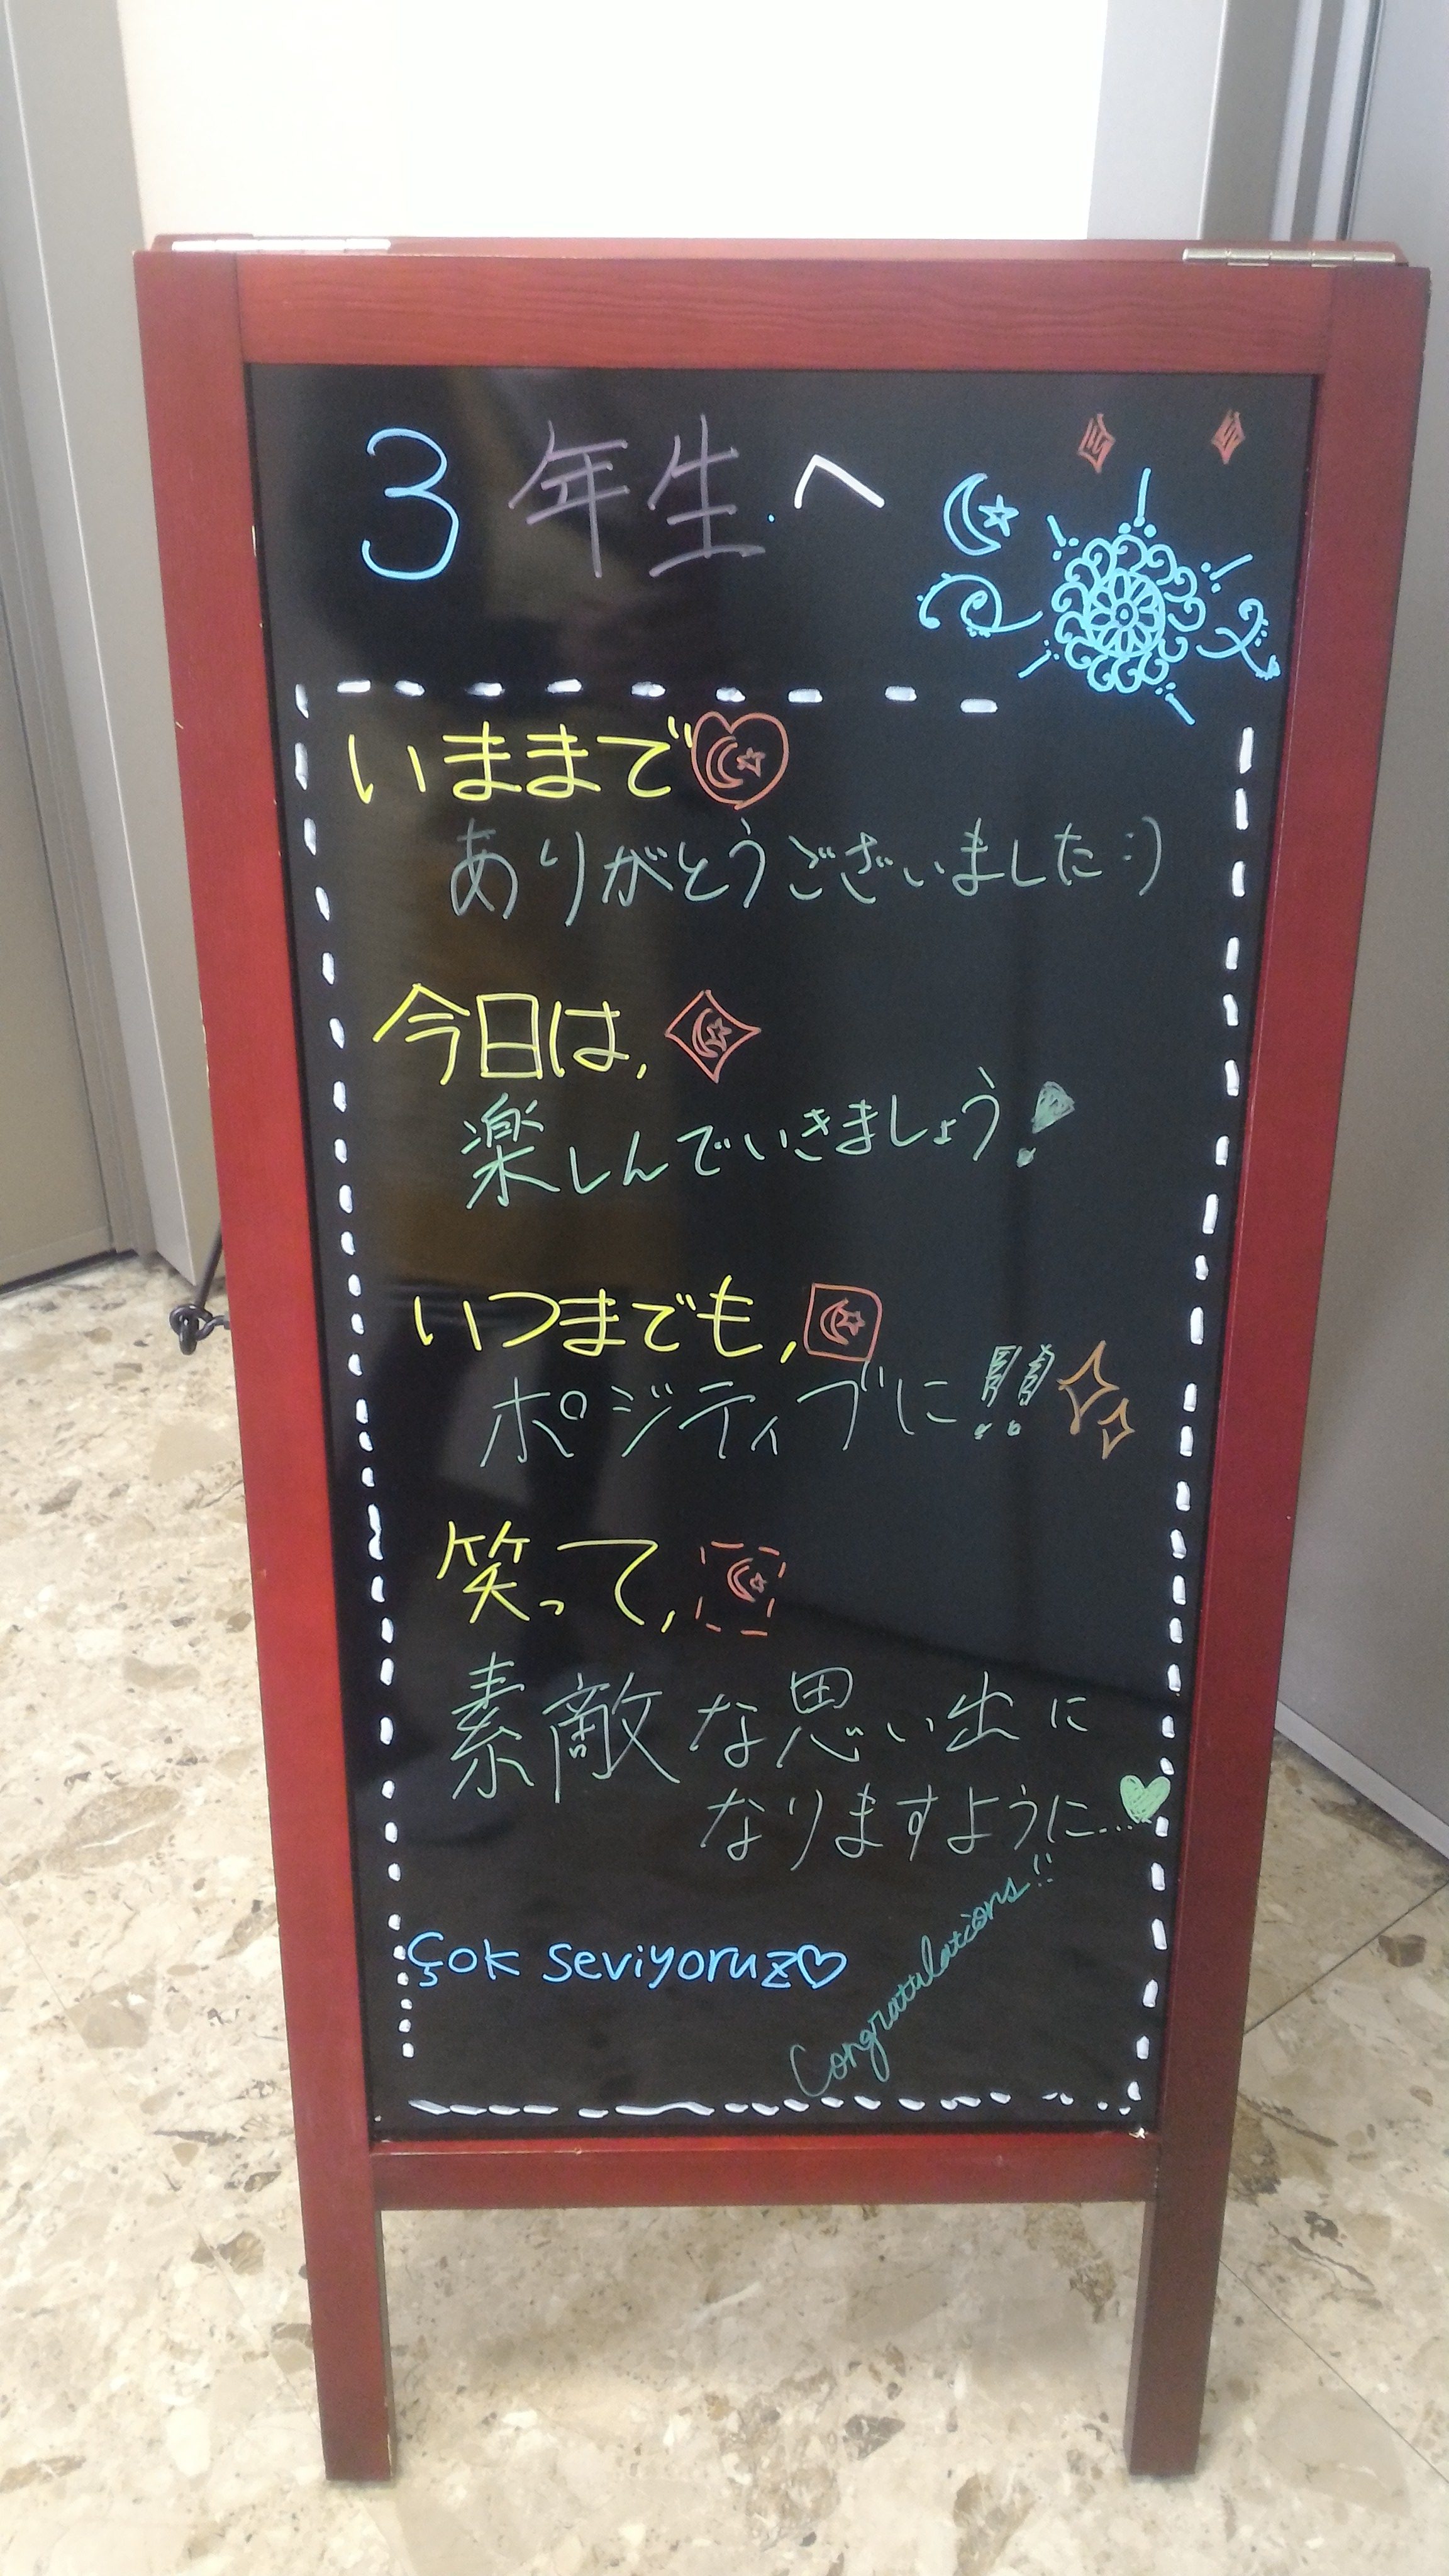 3年生へ
いままで
ありがとうございました:)
今日は,
楽しんでいきましょう!
いつまでも,
ポジティブに!!
笑って,
素敵な思い出に
なりますように....
Çok seviyoruz♡
Congratulations!!